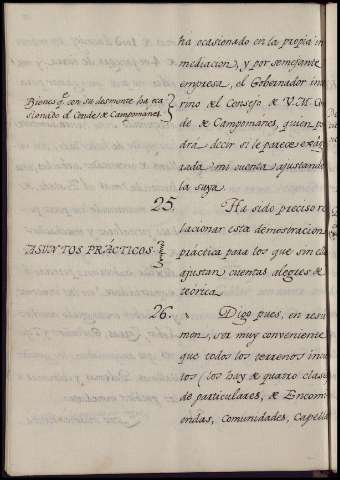 ha ocasionado en la propia in
mediacion, y por semejante
empresa, el Gobernador inte
rino del Consejo de V.M. Con
de de Campománes, quien po
drá decir si le parece exâge
rada mi cuenta ajustando
la suya.
Bienes q.e con su desmonte ha oca
sionado el Conde de Campománes.
25.
Ha sido preciso re
lacionar esta demostracion
práctica para los que sin ella
ajustan cuentas alegres de
teórica.
ASUNTOS PRÁCTICOS.
26.
Digo pues, en resu
men, ser muy conveniente
que todos los terrenos incul
tos (los hay de quatro clases
de particulares, de Encomi
endas, Comunidades, Capella